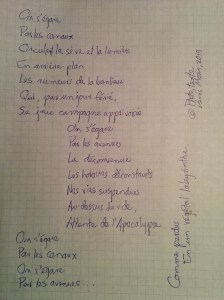 On s'égare
Par les canaux
Circule la sève et la lumière
En arrière plan
Les rumeurs de la banlieue
Qui, jadis un jour
Se joue campagne apprivoisée
On s'égare
Par les avenues
La décadence
Les habitats déconstruits
Nos vies suspendues
Au-dessus du vide,
Attente de l'Apocalypse
On s'égare
Par les canaux
On s'égare
Par les avenues...
Comme perdus
En un végétal labyrinthe